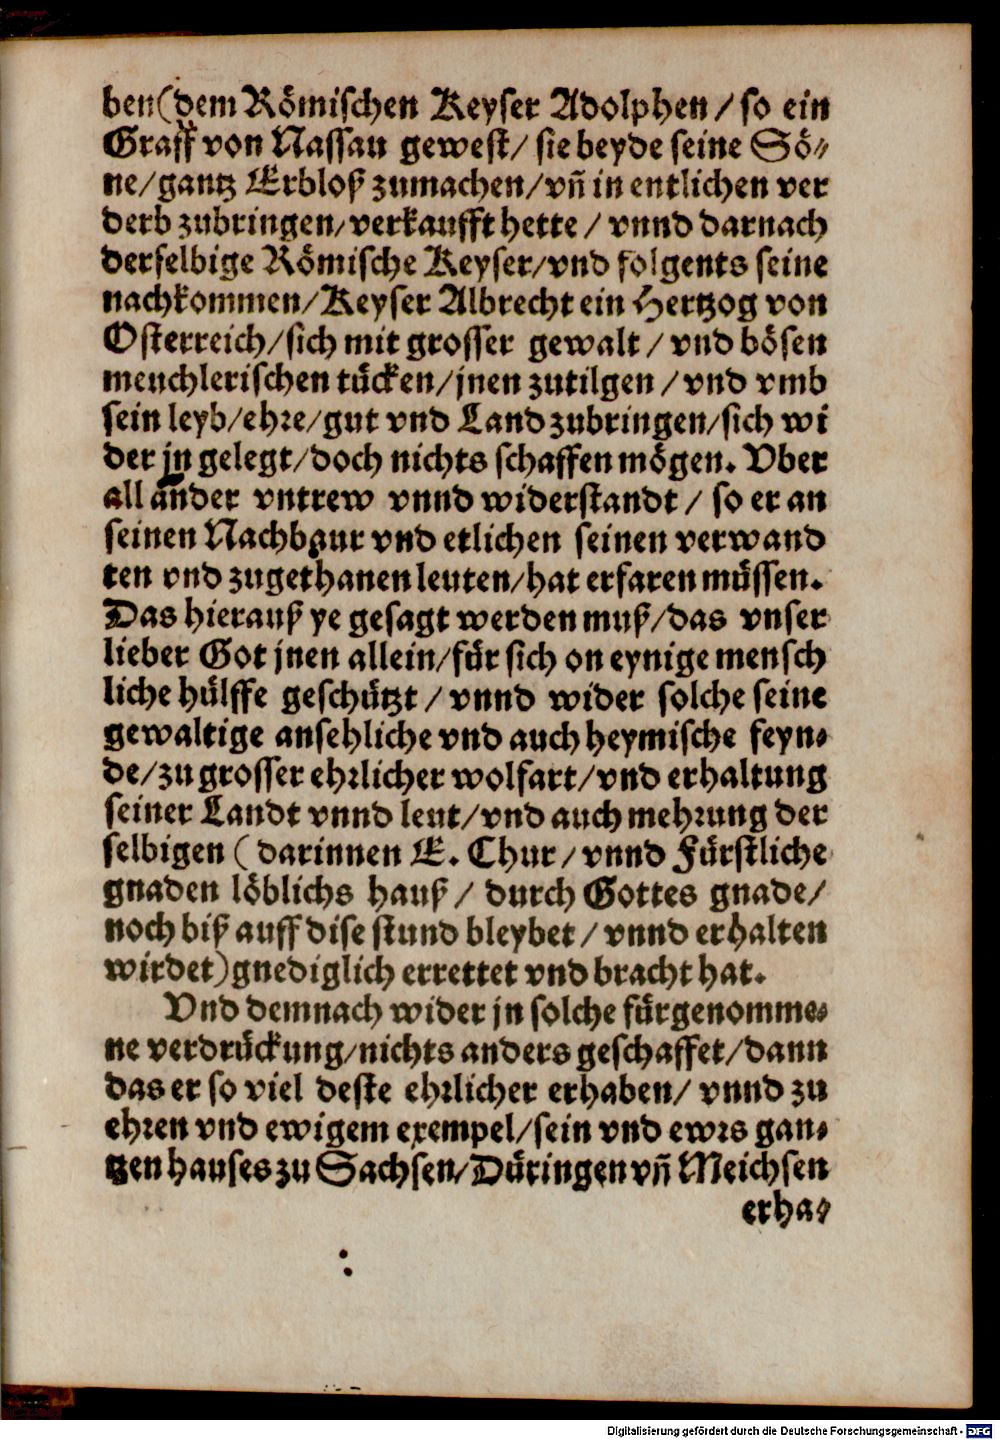 ben (dem Römischen Keyser Adolphen / so ein
Graff von Nassau gewest / sie beyde seine Sö⸗
ne / gantz Erbloß zumachen / vn̄ in entlichen ver
derb zubringen / verkaufft hette / vnnd darnach
derselbige Römische Keyser / vnd folgents seine
nachkommen / Keyser Albrecht ein Hertzog von
Osterreich / sich mit grosser gewalt / vnd bösen
meuchlerischen tücken / jnen zutilgen / vnd vmb
sein leyb / ehre / gut vnd Land zubringen / sich wi
der jn gelegt / doch nichts schaffen mögen. Vber
all ander vntrew vnnd widerstandt / so er an
seinen Nachbaur vnd etlichen seinen verwand
ten vnd zugethanen leuten / hat erfaren müssen.
Das hierauß ye gesagt werden muß / das vnser
lieber Got jnen allein / für sich on eynige mensch
liche hülffe geschützt / vnnd wider solche seine
gewaltige ansehliche vnd auch heymische feyn⸗
de / zu grosser ehrlicher wolfart / vnd erhaltung
seiner Landt vnnd leut / vnd auch mehrung der
selbigen ( darinnen E. Chur / vnnd Fürstliche
gnaden löblichs hauß / durch Gottes gnade /
noch biß auff dise stund bleybet / vnnd erhalten
wirdet) gnediglich errettet vnd bracht hat.
Vnd demnach wider jn solche fürgenomme⸗
ne verdrückung / nichts anders geschaffet / dann
das er so viel deste ehrlicher erhaben / vnnd zu
ehren vnd ewigem exempel / sein vnd ewrs gan⸗
tzen hauses zu Sachsen / Düringen vn̄ Meichsen
erha⸗
Digitalisierung gefördert durch die Deutsche Forschungsgemeinschaft - DFG